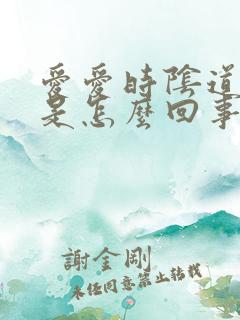 愛愛時陰道
是怎麼回事
謝金剛
未任同意禁止轉載